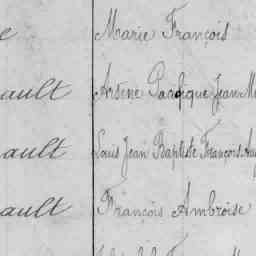 e Marie François
ault Arsène Pacifique Jean M
ault Louis Jean Baptiste François Aug
ault François Ambroise